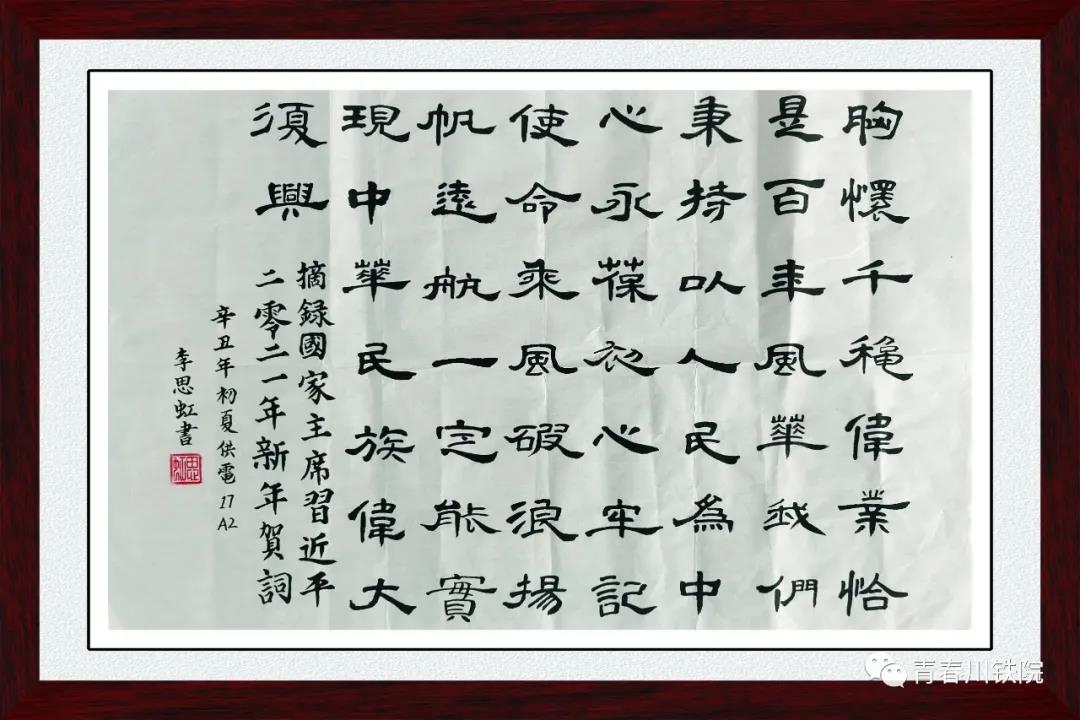 胸懷千穐偉業恰
是百年風華我們
秉持以人民為中
心永葆初心牢記
使命乘風破浪揚
帆遠航一定能實
現中華民族偉大
復興
摘錄國家主席習近平
二零二一年新年賀詞
辛丑年初夏供電17A2
李思虹書
青春川铁院